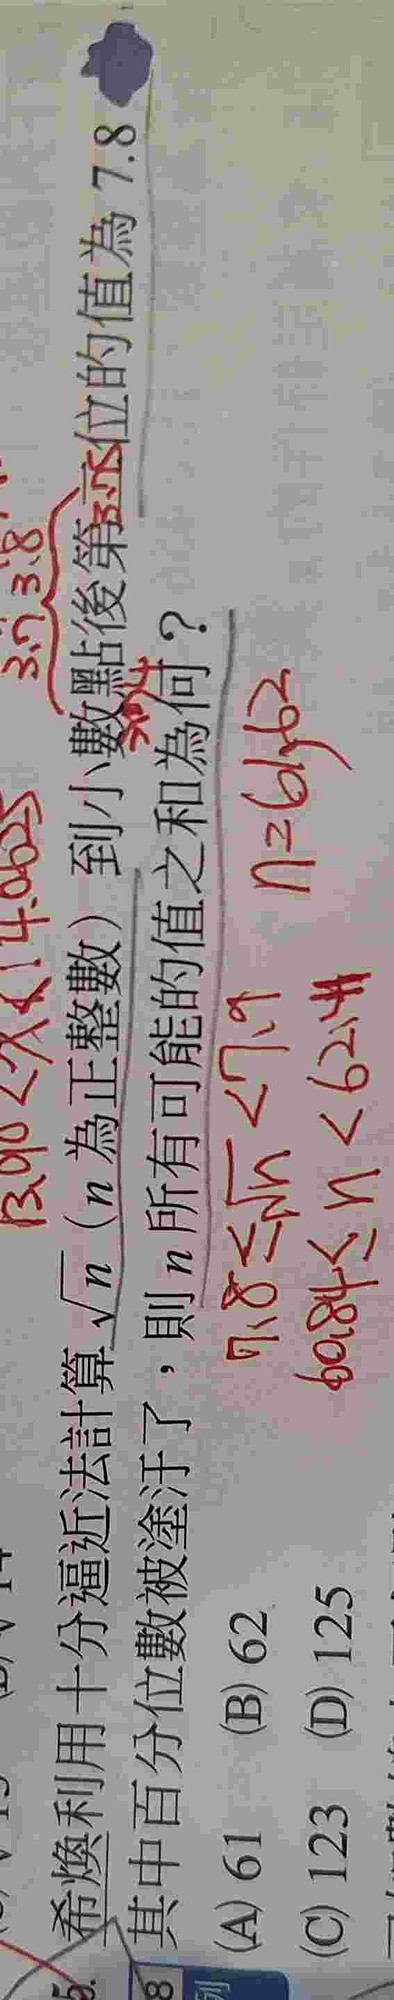 3.7 3.8
13.90 < x < 14.0625
希煥利用十分逼近法計算 √n (n 為正整數) 到小數點後第二位的值為 7.8
3.75
其中百分位數被塗汙了，則 n 所有可能的值之和為何？
(A) 61 (B) 62
7.8 ≤ √n < 7.9 n=61,62
(C) 123 (D) 125
60.84 ≤ n < 62.41
8
例